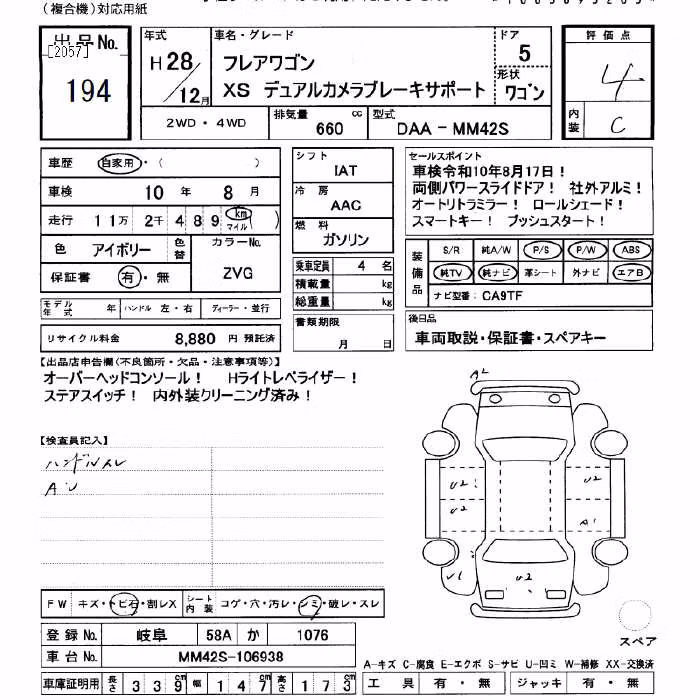 (複合機)対応用紙
出品No.
[2057]
194
年式
H 28
12月
車名・グレード
フレアワゴン
XS デュアルカメラブレーキサポート
ドア
5
形状
ワゴン
評価点
4
内装
C
2WD・4WD
排気量
cc
660
型式
DAA-MM42S
車歴
自家用・( )
車検
10 年 8 月
走行
11万 2千 4 8 9 km マイル ( )
色
アイボリー
色替
カラーNo.
ZVG
保証書
有・無
モデル年式
年
ハンドル 左・右
ディーラー・並行
リサイクル料金
8,880 円 預託済
シフト
IAT
冷房
AAC
燃料
ガソリン
乗車定員 4 名
積載量 kg
総重量 kg
書類期限
月 日
セールスポイント
車検令和10年8月17日!
両側パワースライドドア! 社外アルミ!
オートリトラミラー! ロールシェード!
スマートキー! プッシュスタート!
装備品
S/R 純A/W P/S P/W ABS
純TV 純ナビ 革シート 外ナビ エアB
ナビ型番: CA9TF
後日品
車両取説・保証書・スペアキー
【出品店申告欄(不良箇所・欠品・注意事項等)】
オーバーヘッドコンソール! Hライトレベライザー!
ステアスイッチ! 内外装クリーニング済み!
【検査員記入】
ハンドルスレ
AU
A2
U2
U2
U2
A1
U1
U2
スペア
FW キズ・トビ石・割レX
シート内装 コゲ・穴・汚レ・シミ・破レ・スレ
登録No. 岐阜 58A か 1076
車台No. MM42S-106938
車庫証明用 長さ 3 3 9 cm 幅 1 4 7 cm 高さ 1 7 3 cm
A-キズ C-腐食 E-エクボ S-サビ U-凹ミ W-補修 XX-交換済
工具 有・無 ジャッキ 有・無